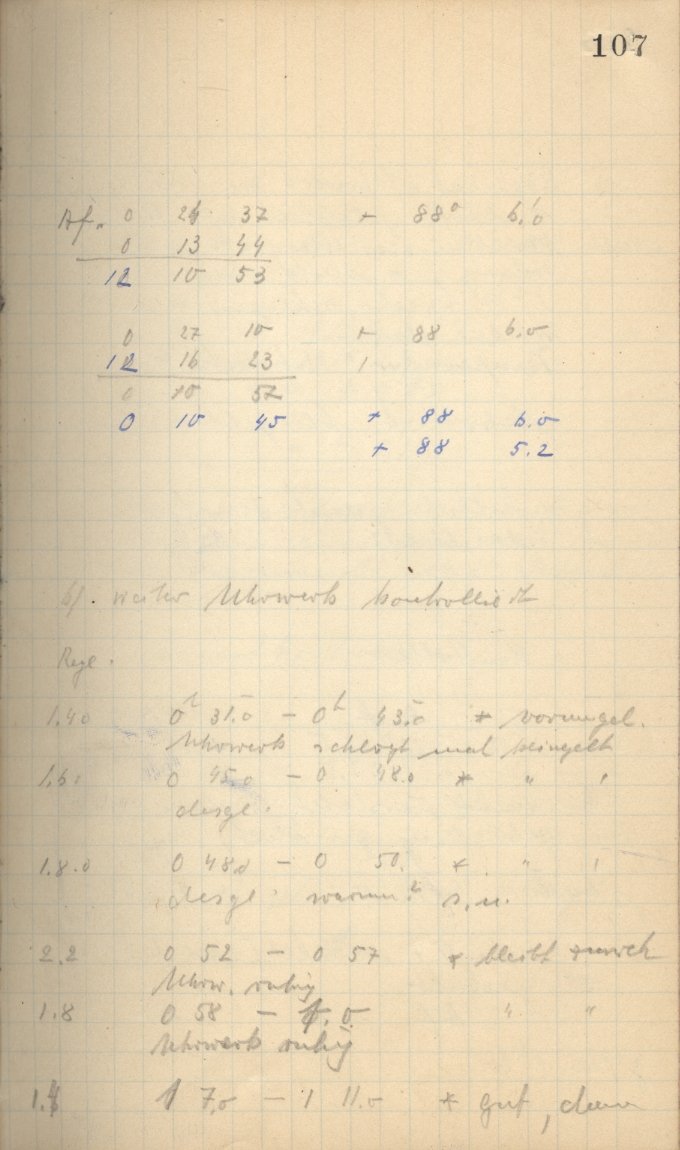 107
Af. 0 24 37 + 88° 6.'0
0 13 44
12 10 53
0 27 10 + 88 6.0
12 16 23
0 10 52
0 10 45 + 88 6.0
+ 88 5.2
b). weiter Uhrwerk kontrolliert
Regl.
1.40 0h 31.0 — 0h 43.0 * voraus
Uhrwerk schlägt mal
1.6 0 45.0 — 0 48.0 * " "
desgl.
1.8.0 0 48.0 — 0 50. * " "
desgl. warum? s.u.
2.2 0 52 — 0 57 * bleibt zurück
Uhrw. ruhig
1.8 0 58 — 1. 0. " "
Uhrwerk ruhig
1 7.0 — 1 11.0 * gut, dann